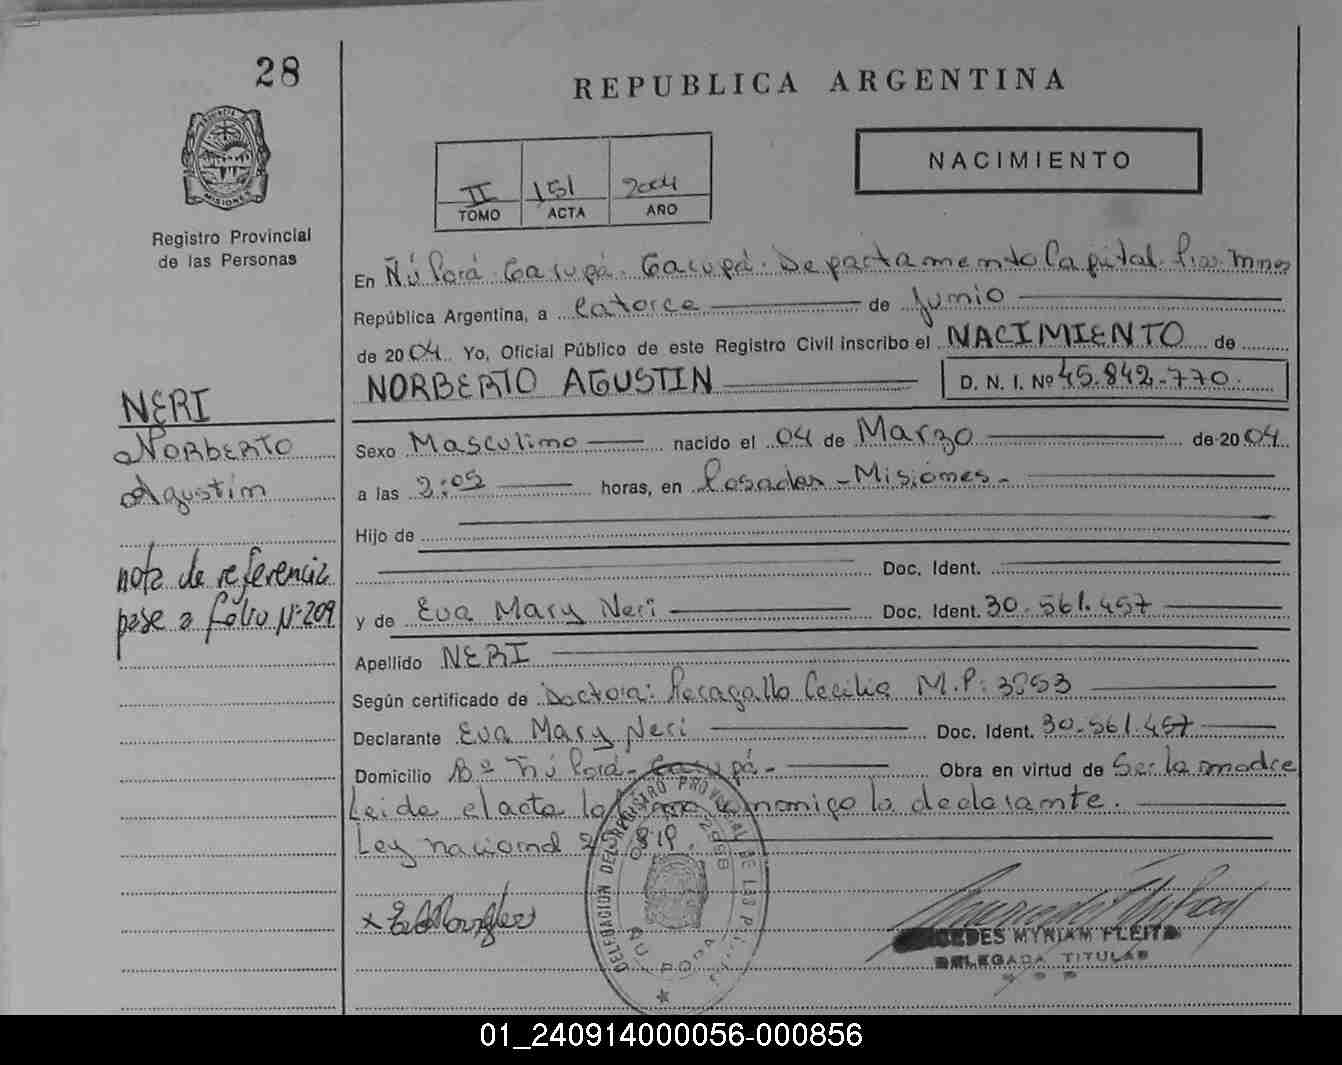 28
REPUBLICA ARGENTINA
NACIMIENTO
II 151 2004
TOMO ACTA AÑO
PROVINCIA DE
MISIONES
Registro Provincial
de las Personas
En Ñú Porá. Garupá. Garupá. Departamento Capital. Pia. Mnes
República Argentina, a Catorce de Junio
de 2004. Yo, Oficial Público de este Registro Civil inscribo el NACIMIENTO de
NORBERTO AGUSTIN D. N. I. Nº 45.842.770.
NERI
Norberto
Agustin
Sexo Masculino nacido el 04 de Marzo de 2004
a las 2:05 horas, en Posadas - Misiones -
Hijo de
Doc. Ident.
nota de referencia
pase a folio Nº 209
y de Eva Mary Neri Doc. Ident. 30.561.457
Apellido NERI
Según certificado de Doctora: Cecilia M.P: 3053
Declarante Eva Mary Neri Doc. Ident. 30.561.457
Domicilio Bº Ñú Porá - Garupá - Obra en virtud de Ser la madre
Leida el acta la conmigo la declarante.
Ley nacional
DELEGACION DEL REGISTRO PROVINCIAL DE LAS
ÑU PORA
MYRIAM FLEITA
DELEGADA TITULAR
01_240914000056-000856